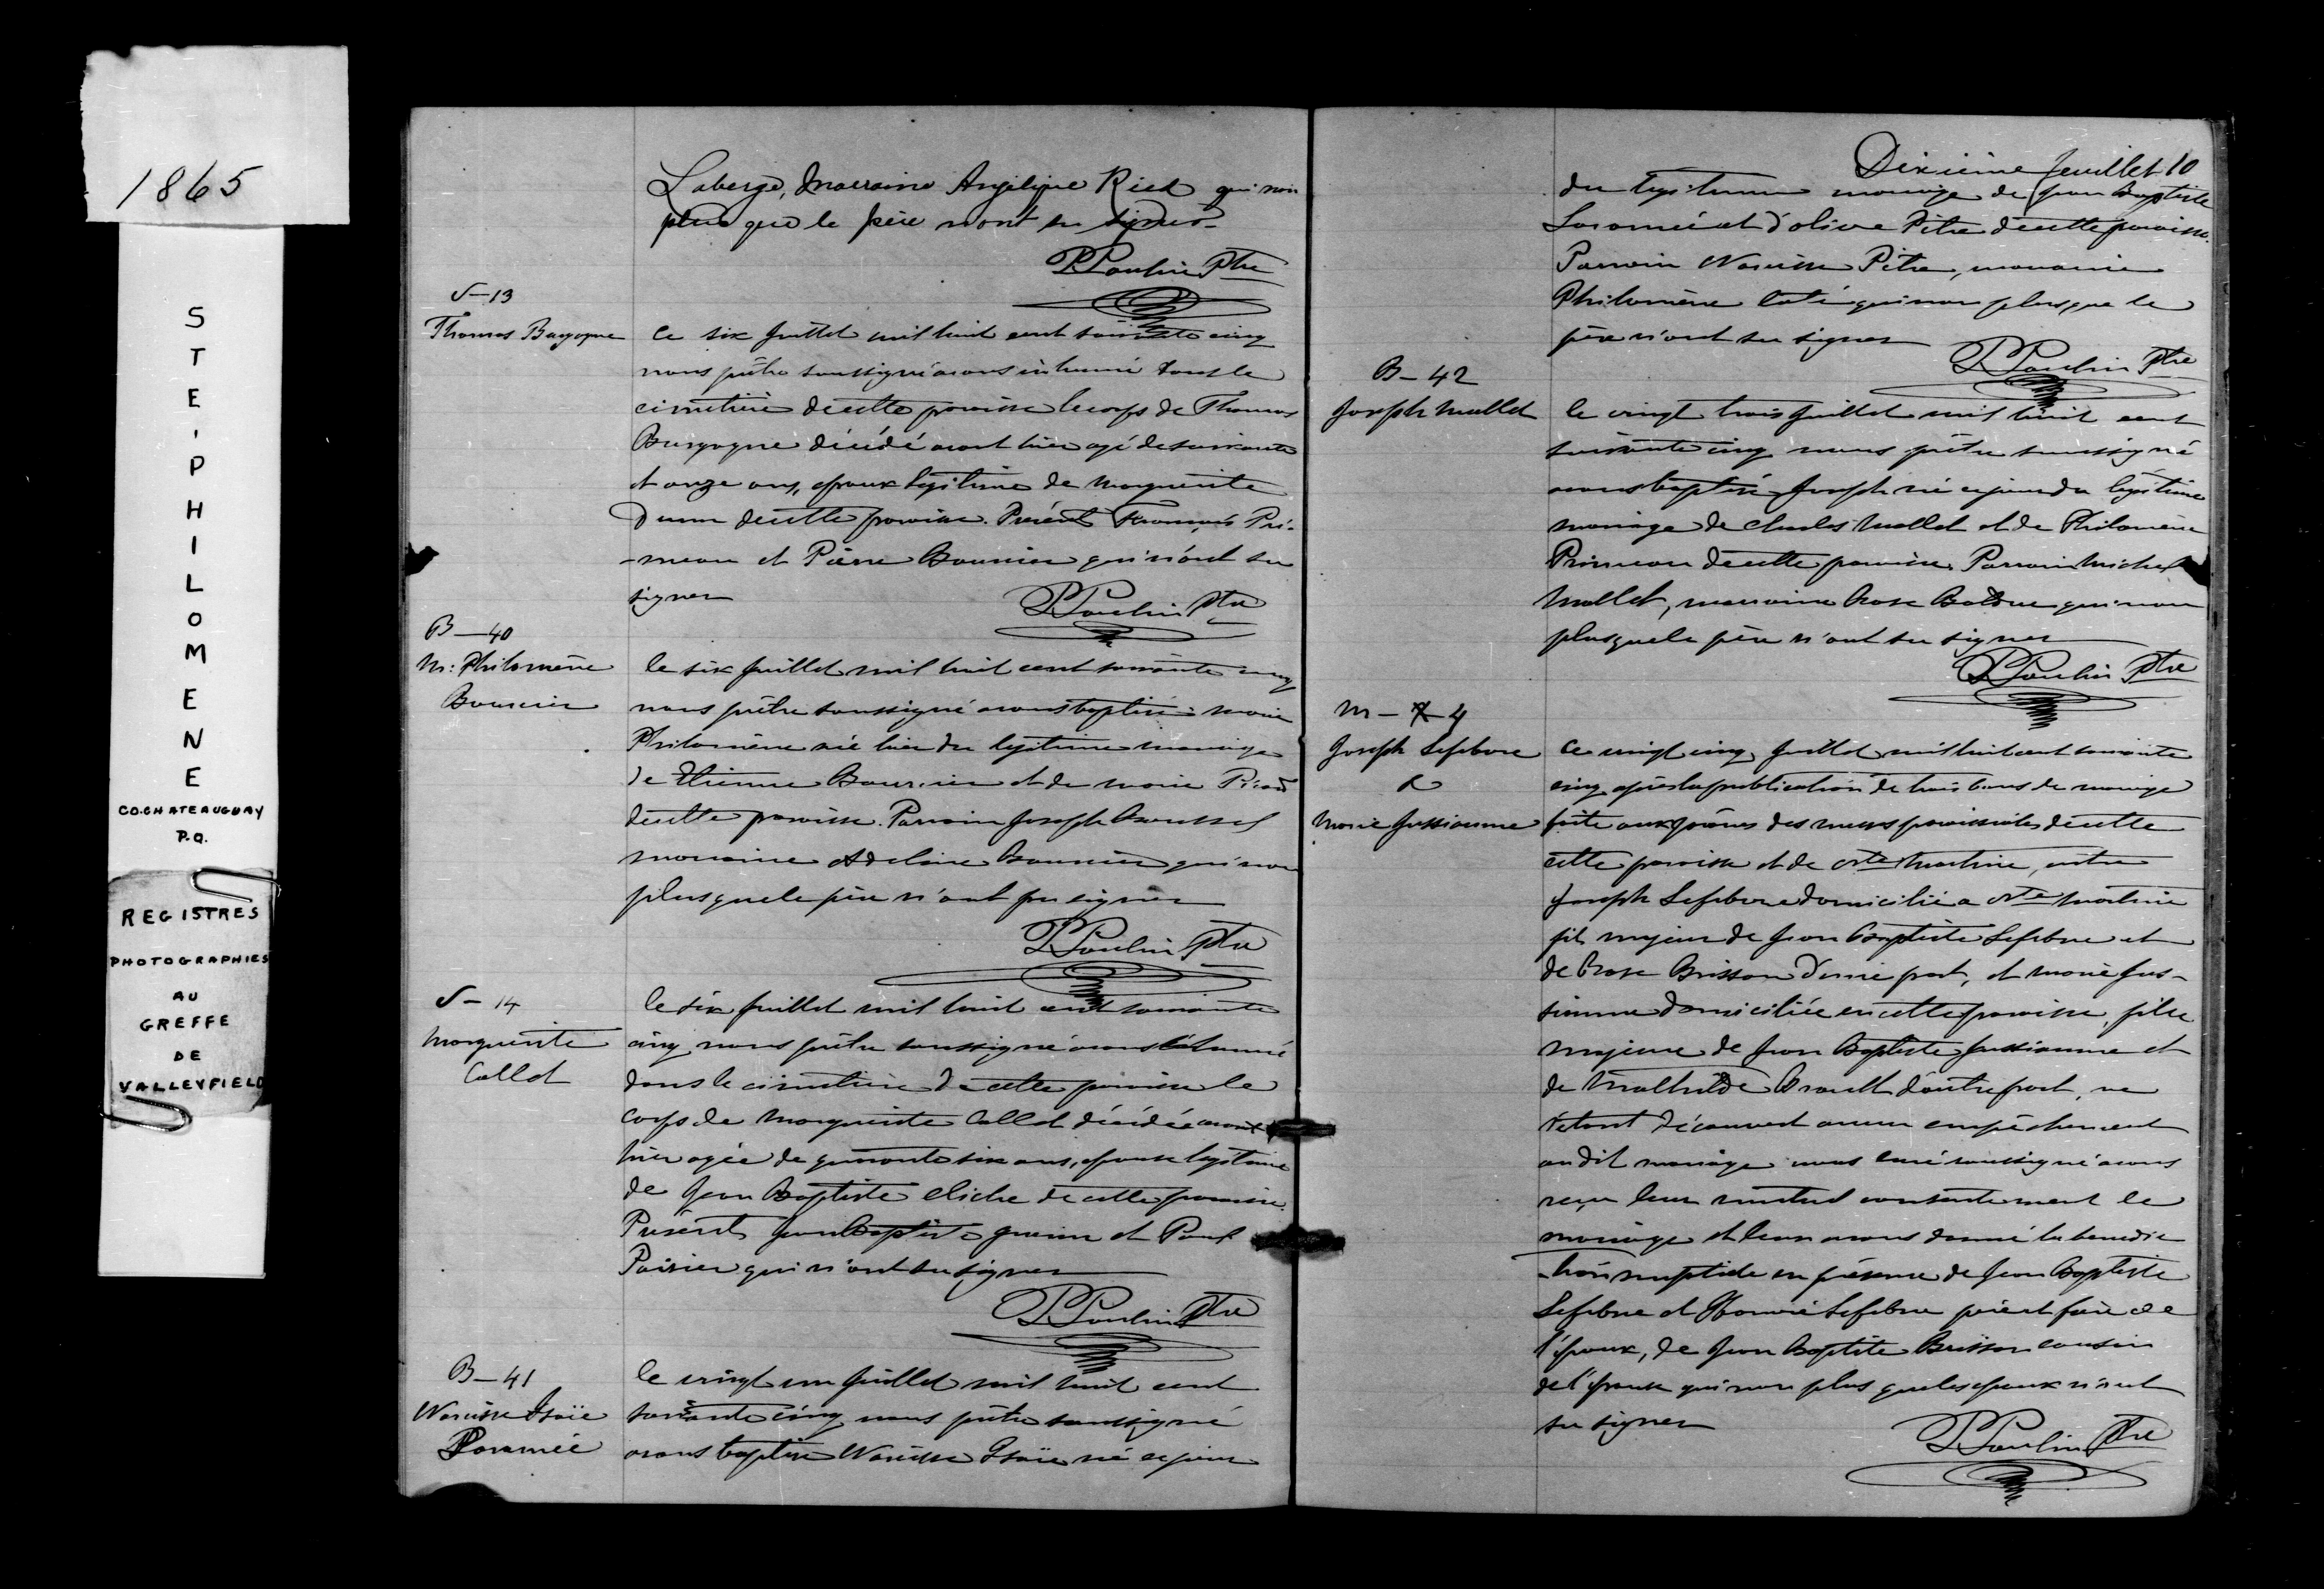 1865
STE'PHILOMENE
CO.CHATEAUGUAY
P.Q.
REGISTRES
PHOTOGRAPHIES
AU
GREFFE
DE
VALLEYFIELD
Laberge, Marraine Angélique Ried qui non
plus que le père n'ont su signer.
P. Poulin Ptre
S–13
Thomas Burgogne
Ce six Juillet mil huit cent soixante cinq
nous prêtre soussigné avons inhumé dans le
cimetière de cette paroisse le corps de Thomas
Burgogne décédé avant hier agé de soixante
et onze ans, époux légitime de Marguerite
de cette paroisse. Présents François Pri-
-meau et Pierre Bourcier qui n'ont su
signer
P. Poulin Ptre
B–40
M: Philomène
Bourcier
le six Juillet mil huit cent soixante cinq
nous prêtre soussigné avons baptisé Marie
Philomène née hier du legitime mariage
de Etienne Bourcier et de Marie
de cette paroisse. Parrain Joseph
marraine Adelaine Bourcier qui non
plus que le père n'ont pu signer
P. Poulin Ptre
S–14
Marguerite
Collet
le six Juillet mil huit cent soixante
cinq nous prêtre soussigné avons inhumé
dans le cimetière de cette paroisse le
corps de Marguerite Collet décédée avant
hier agée de quarante six ans, épouse legitime
de Jean Baptiste Cliche de cette paroisse.
Présents Jean Baptiste et Paul
Poirier qui n'ont su signer
P. Poulin Ptre
B–41
Narcisse Isaïe
Laramée
le vingt un Juillet mil huit cent
soixante cinq nous prêtre soussigné
avons baptisé Narcisse Isaïe né ce jour
Dixième feuillet 10
du legitime mariage de Jean Baptiste
Laramée et d'olive Pitre de cette paroisse.
Parrain Narcisse Pitre, marraine
Philomène qui non plus que le
père n'ont su signer
P. Poulin Ptre
B–42
Joseph Mallet
le vingt trois Juillet mil huit cent
soixante cinq nous prêtre soussigné
avons baptisé Joseph né ce jour du légitime
mariage de Charles Mallet et de Philomène
Primeau de cette paroisse. Parrain Michel
Mallet, marraine Rose qui non
plus que le père n'ont su signer
P. Poulin Ptre
M–4
Joseph Lefebvre
&
Marie Jussiaume
Ce vingt cinq Juillet mil huit cent soixante
cinq après la publication de trois bans de mariage
faite aux prônes des messes paroissiales de cette
cette paroisse et de Ste Martine, entre
Joseph Lefebvre domicilié a Ste Martine
fils majeur de Jean Baptiste Lefebvre et
de Rose Brisson d'une part, et Marie Jus-
siaume domiciliée en cette paroisse, fille
majeure de Jean Baptiste Jussiaume et
de Mathilde Brault d'autre part, ne
s'étant découvert aucun empêchement
au dit mariage nous curé soussigné avons
reçu leur mutuel consentement le
mariage et leur avons donné la benedic
-tion nuptiale en présence de Jean Baptiste
Lefebvre et Lefebvre père et frère de
l'époux, de Jean Baptiste Brisson cousin
de l'épouse qui non plus que les époux n'ont
su signer
P. Poulin Ptre